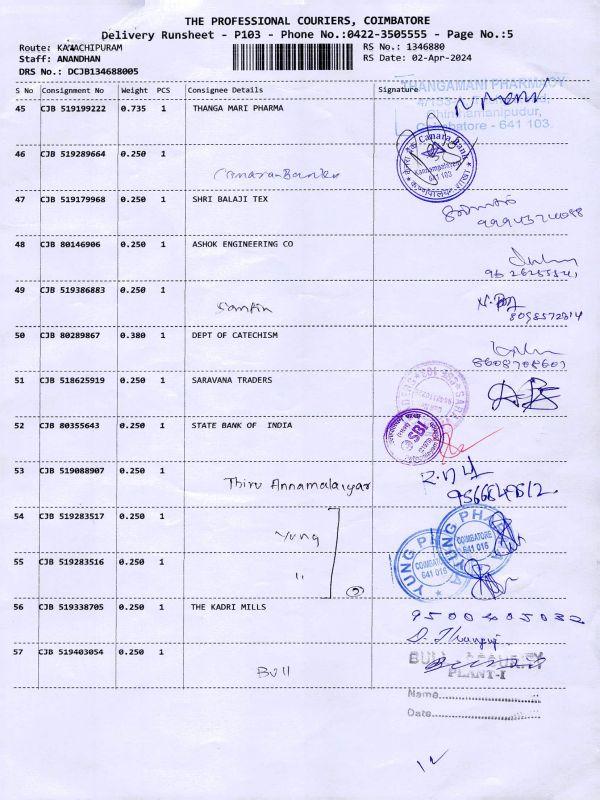 THE PROFESSIONAL COURIERS, COIMBATORE
Delivery Runsheet - P103 - Phone No.:0422-3505555 - Page No.:5
Route: KANACHIPURAM RS No.: 1346880
Staff: ANANDHAN RS Date: 02-Apr-2024
DRS No.: DCJB134688005
S No Consignment No Weight PCS Consignee Details Signature
THANGAMANI PHARMACY
45 CJB 519199222 0.735 1 THANGA MARI PHARMA
Chinnamanipudur,
Coimbatore - 641 103.
46 CJB 519289664 0.250 1
Canara Bank
641 103
47 CJB 519179968 0.250 1 SHRI BALAJI TEX
48 CJB 80146906 0.250 1 ASHOK ENGINEERING CO
49 CJB 519386883 0.250 1
8098572814
50 CJB 80289867 0.380 1 DEPT OF CATECHISM
51 CJB 518625919 0.250 1 SARAVANA TRADERS
52 CJB 80355643 0.250 1 STATE BANK OF INDIA
SBI
53 CJB 519088907 0.250 1 Thiru Annamalaiyar
54 CJB 519283517 0.250 1 Yung
YUNG PHARMA
COIMBATORE
641 016
55 CJB 519283516 0.250 1 "
YUNG PHARMA
COIMBATORE
641 016
2
56 CJB 519338705 0.250 1 THE KADRI MILLS 9500405032
57 CJB 519403054 0.250 1 Bull
PLANT-I
Name
Date